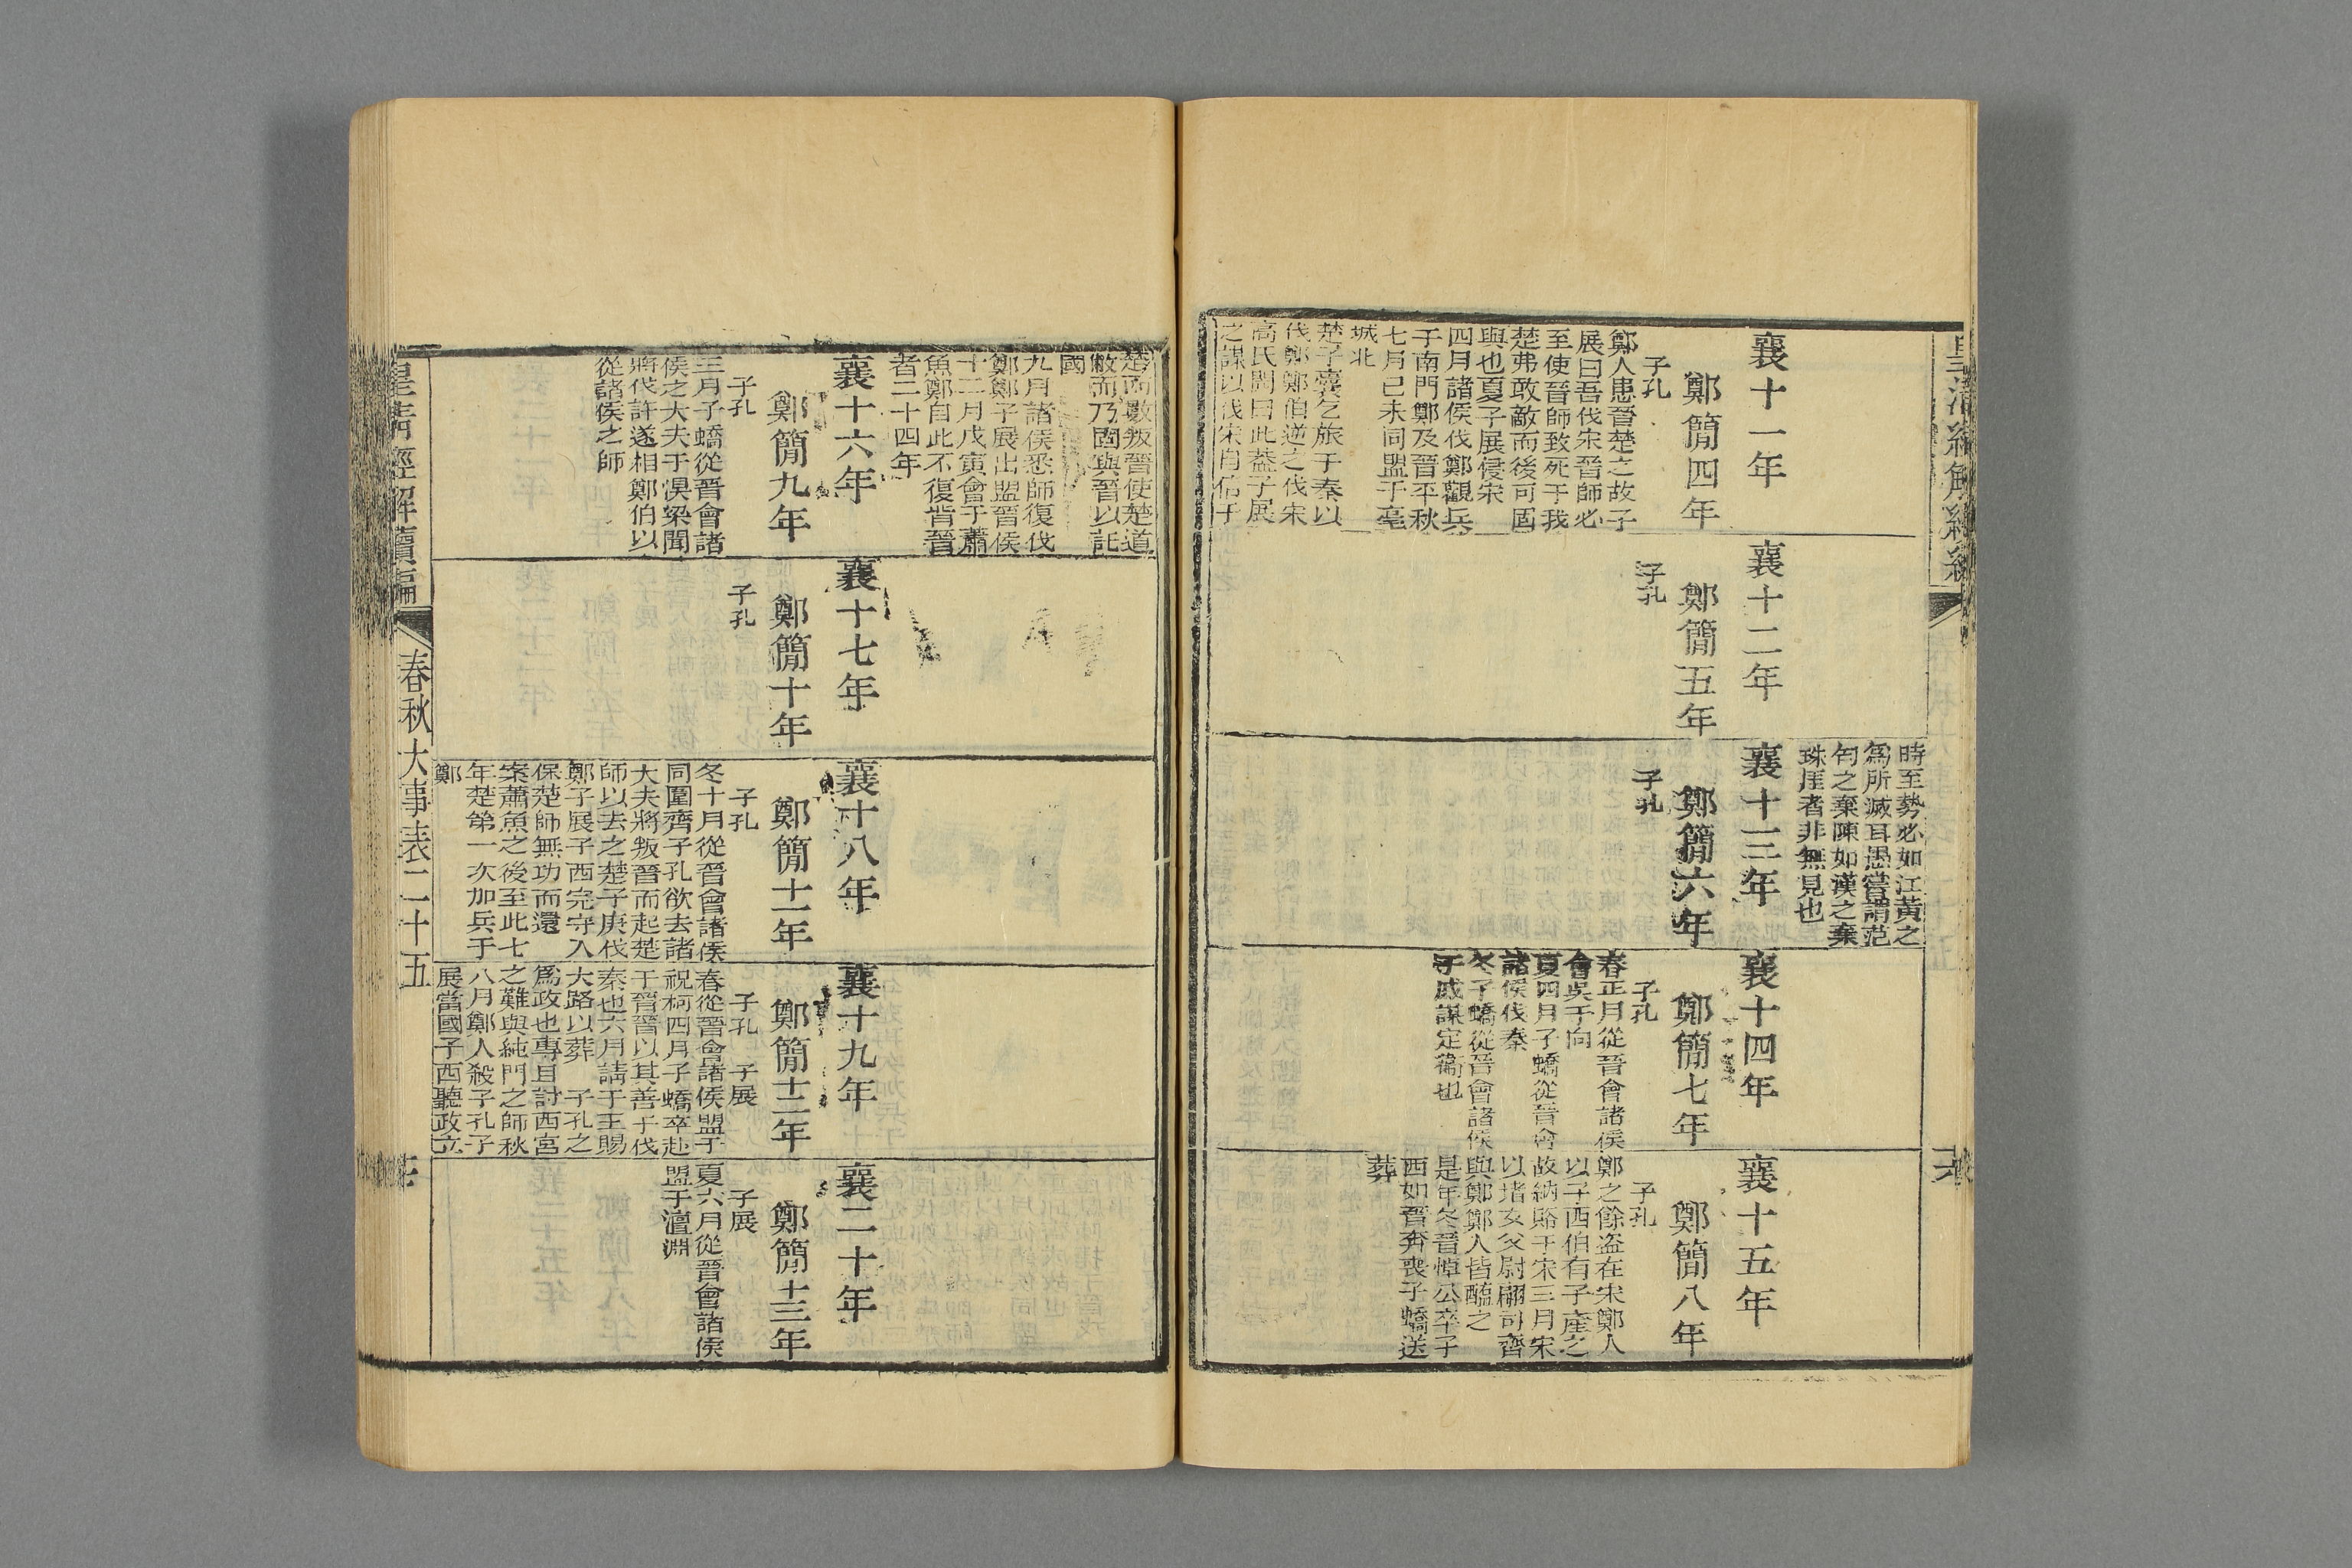 襄十一年
鄭簡四年
子孔
鄭人患晉楚之故子
展曰吾伐宋晉師必
至使晉師致死于我
楚弗敢敵而後可固
與也夏子展侵宋
四月諸侯伐鄭觀兵
于南門鄭及晉平秋
七月己未同盟于亳
城北
楚子囊乞旅于秦以
伐鄭鄭伯逆之伐宋
高氏閌曰此葢子展
之謀以伐宋自信于
襄十二年
鄭簡五年
子孔
時至勢必如江黃之
爲所滅耳愚嘗謂范
匄之棄陳如漢之棄
珠厓者非無見也
襄十三年
鄭簡六年
子孔
襄十四年
鄭簡七年
子孔
春正月從晉會諸侯
會吳于向
夏四月子蟜從晉會
諸侯伐秦
冬子蟜從晉會諸侯
于戚謀定衞也
襄十五年
鄭簡八年
子孔
鄭之餘盗在宋鄭人
以子西伯有子產之
故納賂于宋三月宋
以堵女父尉翩司齊
與鄭鄭人皆醢之
是年冬晉悼公卒子
西如晉奔喪子蟜送
葬
楚而數叛晉使楚道
敝而乃固與晉以託
國
九月諸侯悉師復伐
鄭鄭子展出盟晉侯
十二月戊寅會于蕭
魚鄭自此不復背晉
者二十四年
襄十六年
鄭簡九年
子孔
三月子蟜從晉會諸
侯之大夫于湨梁聞
將伐許遂相鄭伯以
從諸侯之師
襄十七年
鄭簡十年
子孔
襄十八年
鄭簡十一年
子孔
冬十月從晉會諸侯
同圍齊子孔欲去諸
大夫將叛晉而起楚
師以去之楚子庚伐
鄭子展子西完守入
保楚師無功而還
案蕭魚之後至此七
年楚第一次加兵于
鄭
襄十九年
鄭簡十二年
子孔　子展
春從晉會諸侯盟于
祝柯四月子蟜卒赴
于晉晉以其善于伐
秦也六月請于王賜
大路以葬　子孔之
爲政也專且討西宮
之難與純門之師秋
八月鄭人殺子孔子
展當國子西聽政立
襄二十年
鄭簡十三年
子展
夏六月從晉會諸侯
盟于澶淵
皇淸經解續編
春秋大事表二十五